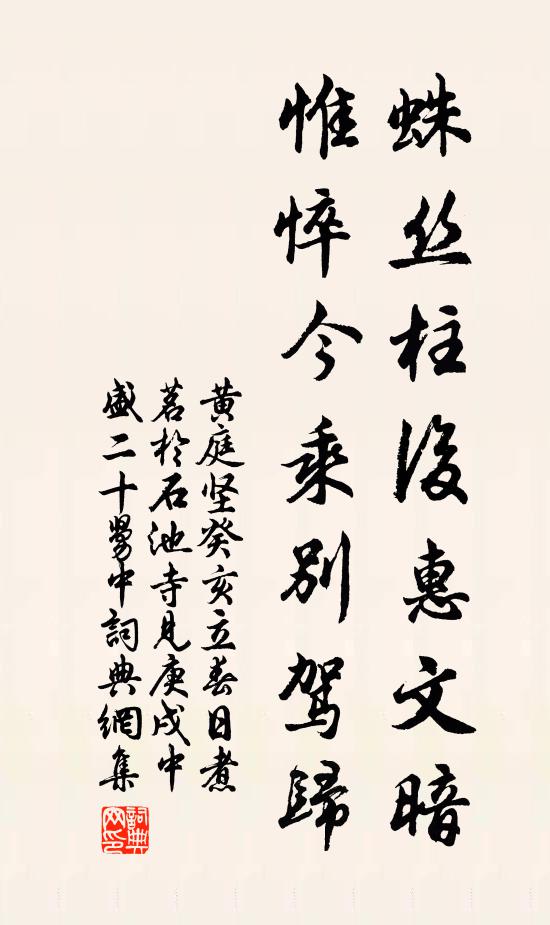 蛛丝柱後惠文暗
惟悴今乘别驾歸
黄庭坚癸亥立春日煮
茗於石池寺見庚戌中
盛二十舅中詞典網集
詞典网印